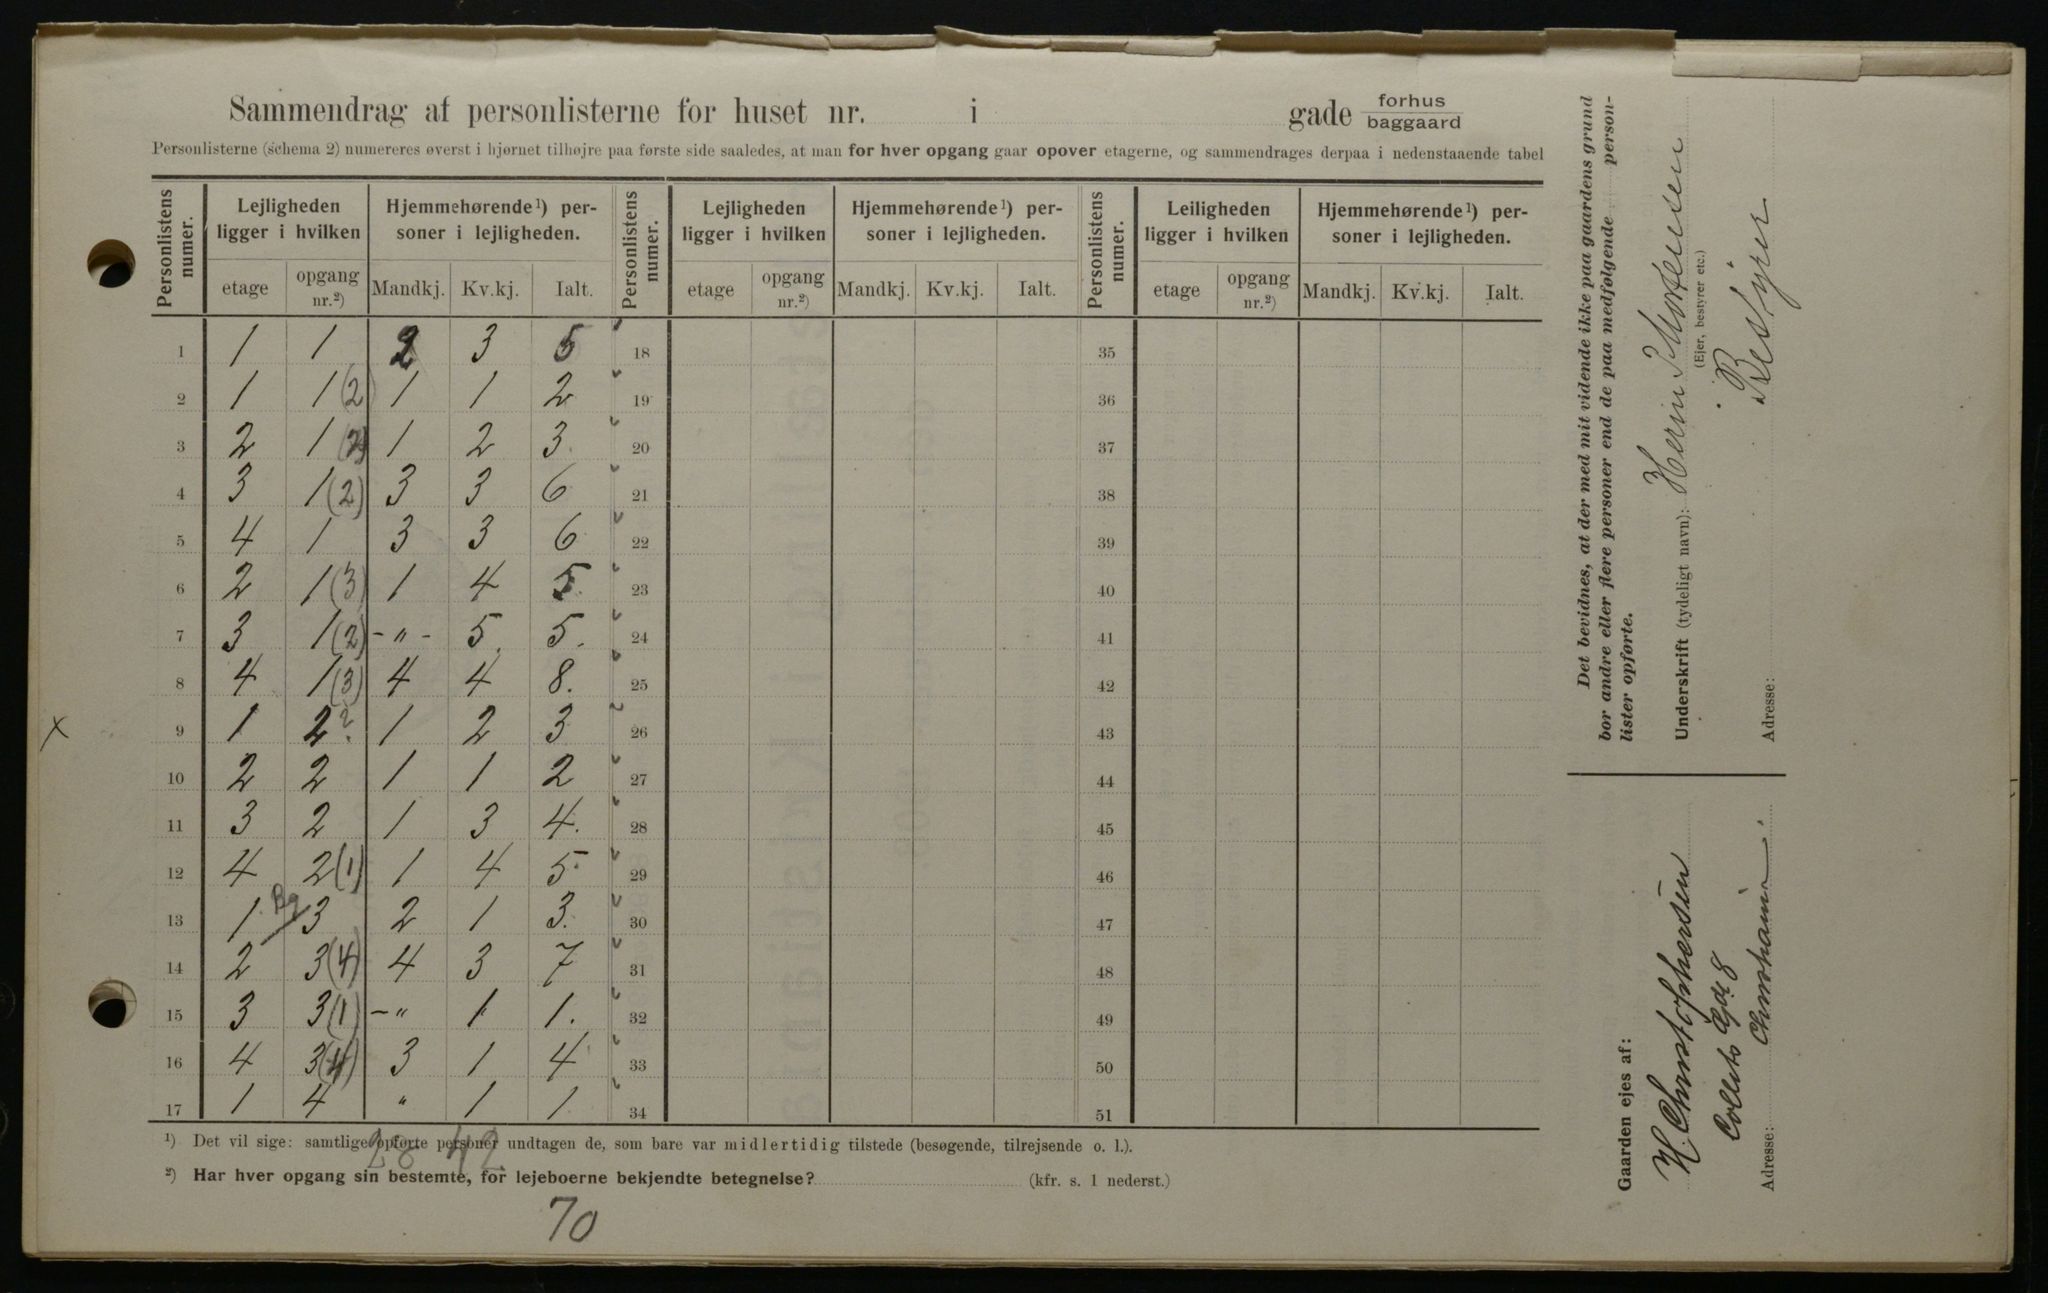 Sammendrag af personlisterne for huset nr. i gade forhus
baggaard
Personlisterne (schema 2) numereres øverst i hjørnet tilhøjre paa første side saaledes, at man for hver opgang gaar opover etagerne, og sammendrages derpaa i nedenstaaende tabel
Personlistens numer. Lejligheden ligger i hvilken Hjemmehørende¹) personer i lejligheden. Personlistens numer. Lejligheden ligger i hvilken Hjemmehørende¹) personer i lejligheden. Personlistens numer. Leiligheden ligger i hvilken Hjemmehørende¹) personer i lejligheden.
etage opgang nr.²) Mandkj. Kv.kj. Ialt. etage opgang nr.²) Mandkj. Kv.kj. Ialt. etage opgang nr.²) Mandkj. Kv.kj. Ialt.
1 1 1 2 3 5 18 35
2 1 1 (2) 1 1 2 19 36
3 2 1 (2) 1 2 3. 20 37
4 3 1 (2) 3 3 6 21 38
5 4 1 3 3 6 22 39
6 2 1 (3) 1 4 5. 23 40
7 3 1 (2) -"- 5. 5. 24 41
8 4 1 (3) 4 4 8. 25 42
x 9 1 2 ? 1 2 3 26 43
10 2 2 1 1 2 27 44
11 3 2 1 3 4. 28 45
12 4 2 (1) 1 4 5. 29 46
13 1 Bg 3 2 1 3. 30 47
14 2 3 (4) 4 3 7 31 48
15 3 3 (1) -" 1 1. 32 49
16 4 3 (4) 3 1 4 33 50
17 1 4 " 1 1 34 51
28 42
¹) Det vil sige: samtlige opførte personer undtagen de, som bare var midlertidig tilstede (besøgende, tilrejsende o. l.).
²) Har hver opgang sin bestemte, for lejeboerne bekjendte betegnelse? (kfr. s. 1 nederst.)
70
Det bevidnes, at der med mit vidende ikke paa gaardens grund
bor andre eller flere personer end de paa medfølgende person-
lister opførte.
Underskrift (tydeligt navn): Herm Mortensen
(Ejer, bestyrer etc.)
Bestyrer
Adresse:
Gaarden ejes af:
H. Christophersen
Colletts Gde 8
Adresse: Christiania.